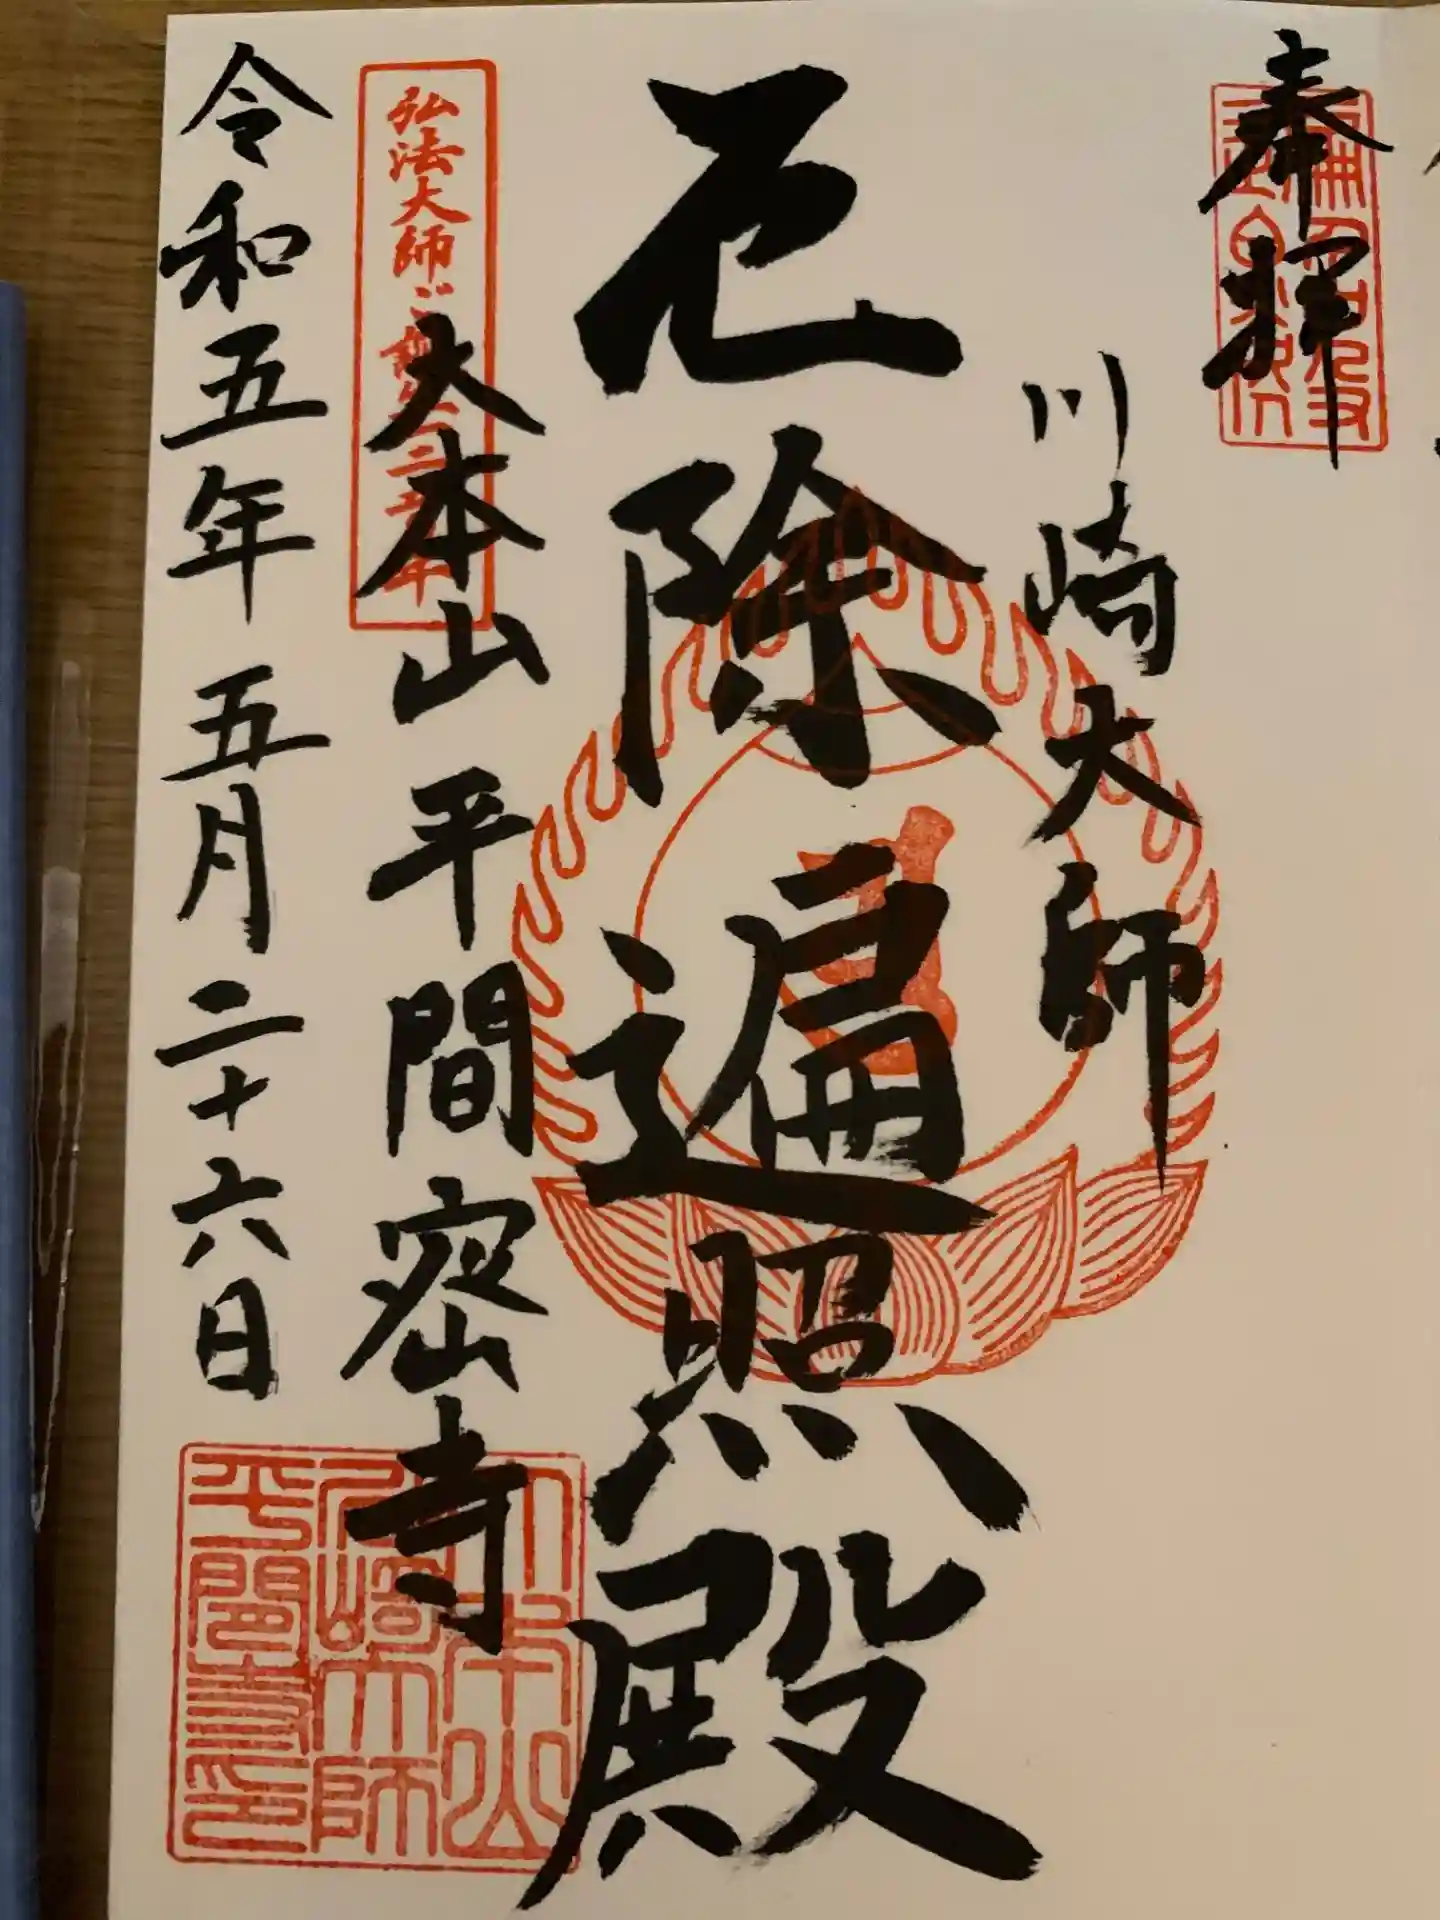 奉拝
川崎大師
厄除遍照殿
大本山平間密寺
弘法大師ご誕
令和五年五月二十六日
大本山
川崎大師
平間寺印